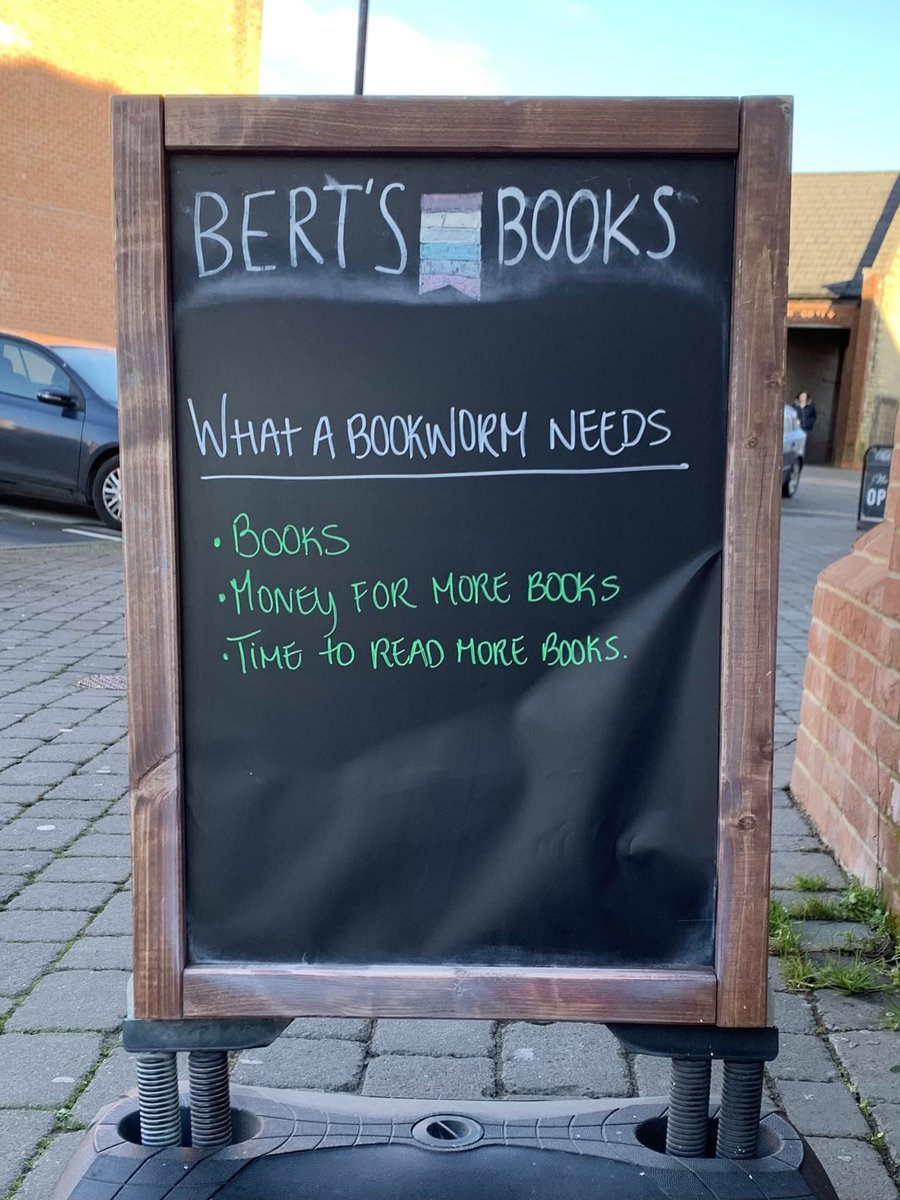 BERT'S BOOKS
WHAT A BOOKWORM NEEDS
• BOOKS
• MONEY FOR MORE BOOKS
• TIME TO READ MORE BOOKS.
OP